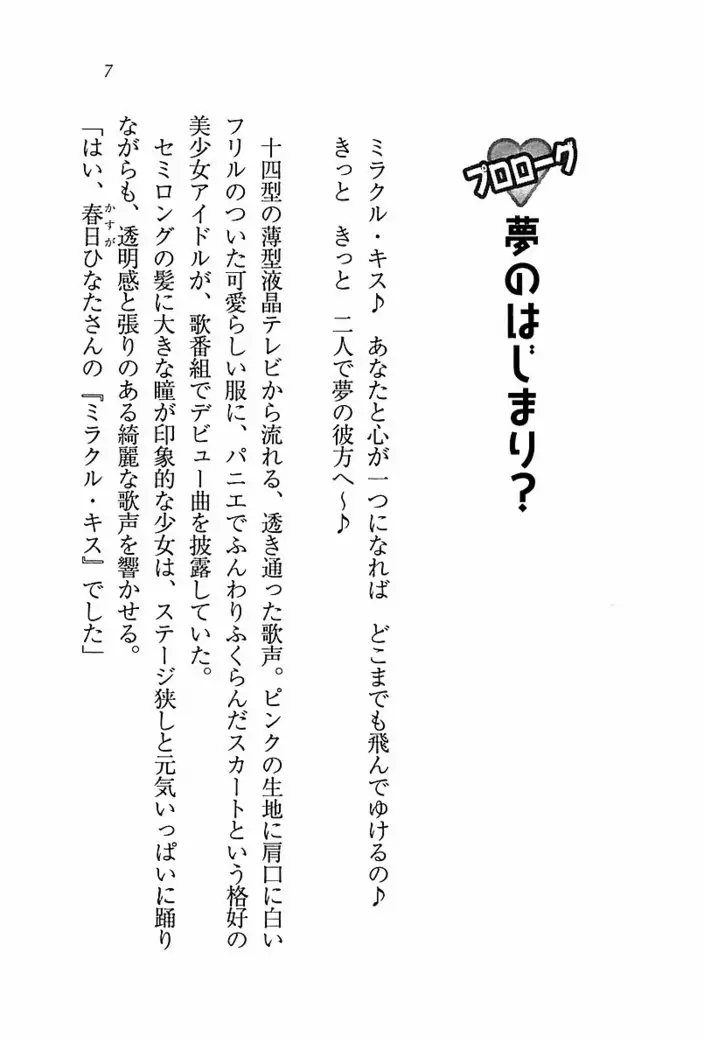 プロローグ
夢のはじまり？
ミラクル・キス♪　あなたと心が一つになれば　どこまでも飛んでゆけるの♪
きっと　きっと　二人で夢の彼方へ～♪
十四型の薄型液晶テレビから流れる、透き通った歌声。ピンクの生地に肩口に白い
フリルのついた可愛らしい服に、パニエでふんわりふくらんだスカートという格好の
美少女アイドルが、歌番組でデビュー曲を披露していた。
セミロングの髪に大きな瞳が印象的な少女は、ステージ狭しと元気いっぱいに踊り
ながらも、透明感と張りのある綺麗な歌声を響かせる。
「はい、春日かすがひなたさんの『ミラクル・キス』でした」
7